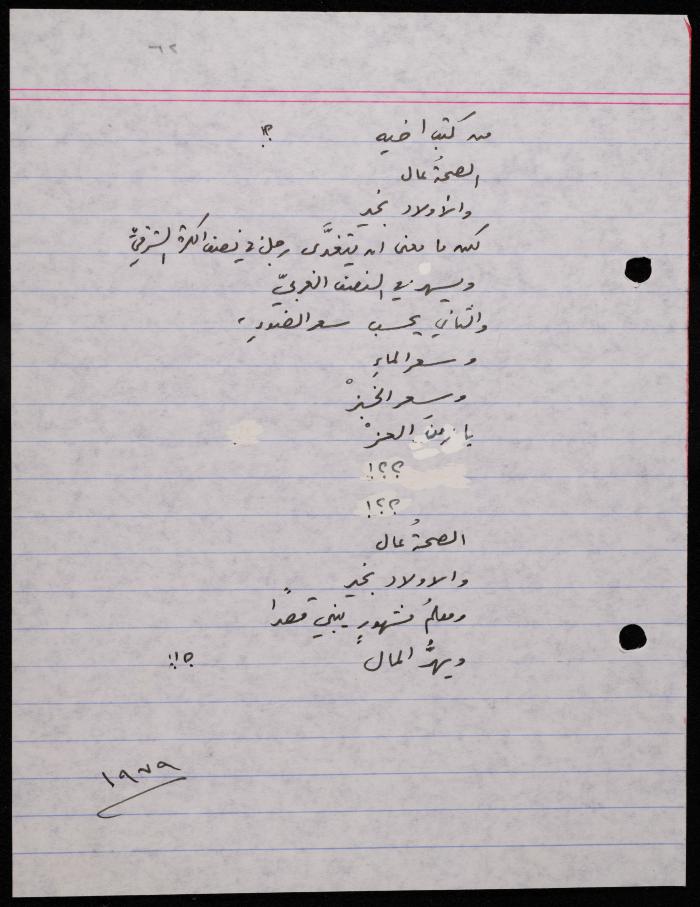 ٦٢
من كتب اخيه ؟!
الصحةُ عال
والأولاد بخير
لكن ما معنى ان يتغدَّى رجل في نصف الكرة الشرقيِّ
ويسهر في النصف الغربيّ
والثاني يحسب سعر الضوءِ،
وسعر الماءِ
وسعر الخبزْ
يا زمنَ العزْ
؟؟!
؟؟!
الصحةُ عال
والاولاد بخير
ومعلمُ مشهورٍ يبني قصراً
ويهرُّ المال ؟!!
١٩٧٩